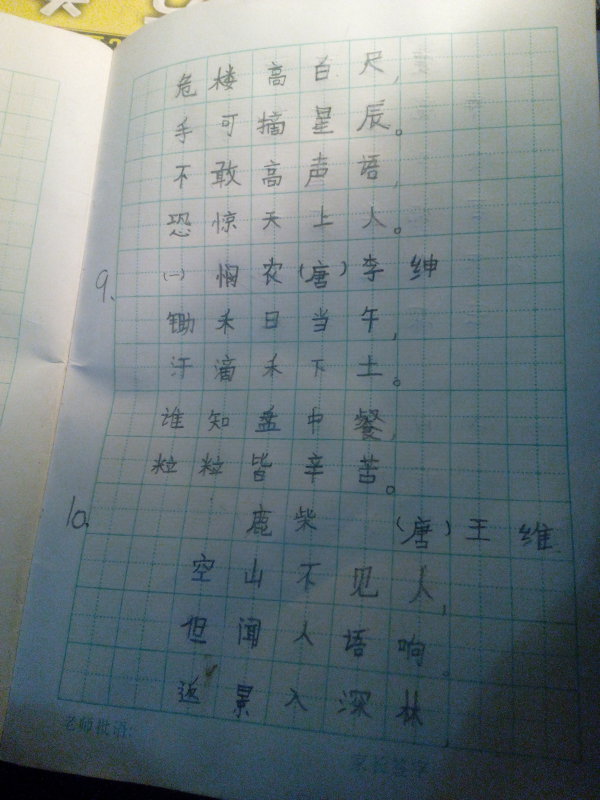 危楼高百尺，
手可摘星辰。
不敢高声语，
恐惊天上人。
9、(一)悯农(唐)李绅
锄禾日当午，
汗滴禾下土。
谁知盘中餐，
粒粒皆辛苦。
10、鹿柴(唐)王维
空山不见人，
但闻人语响。
返景入深林
老师批语:
家长签字